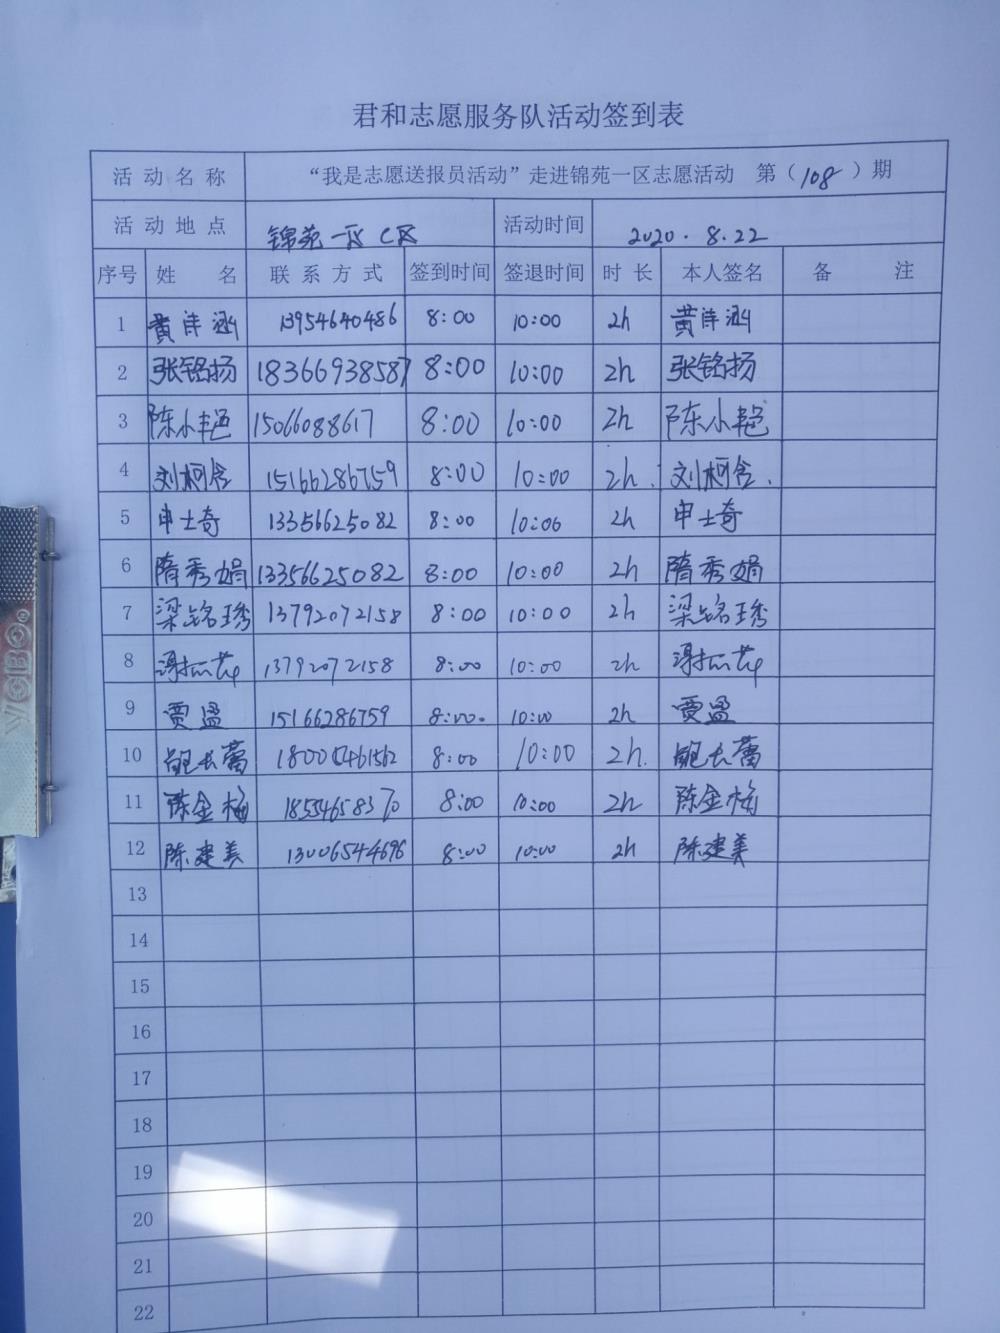 君和志愿服务队活动签到表
活动名称 “我是志愿送报员活动”走进锦苑一区志愿活动 第（108）期
活动地点 锦苑一区C区 活动时间 2020.8.22
序号 姓 名 联系方式 签到时间 签退时间 时长 本人签名 备 注
1 黄诗涵 13954640486 8:00 10:00 2h 黄诗涵
2 张铭扬 18366938587 8:00 10:00 2h 张铭扬
3 陈小艳 15066088617 8:00 10:00 2h 陈小艳
4 刘柯含 15166286759 8:00 10:00 2h. 刘柯含.
5 申士奇 13356625082 8:00 10:00 2h 申士奇
6 隋秀娟 13356625082 8:00 10:00 2h 隋秀娟
7 梁铭琇 13792072158 8:00 10:00 2h 梁铭琇
8 13792072158 8:00 10:00 2h
9 贾孟 15166286759 8:00. 10:00 2h 贾孟
10 鲍长蕾 8:00 10:00 2h. 鲍长蕾
11 陈金梅 18554658370 8:00 10:00 2h 陈金梅
12 陈建美 13006544696 8:00 10:00 2h 陈建美
13
14
15
16
17
18
19
20
21
22